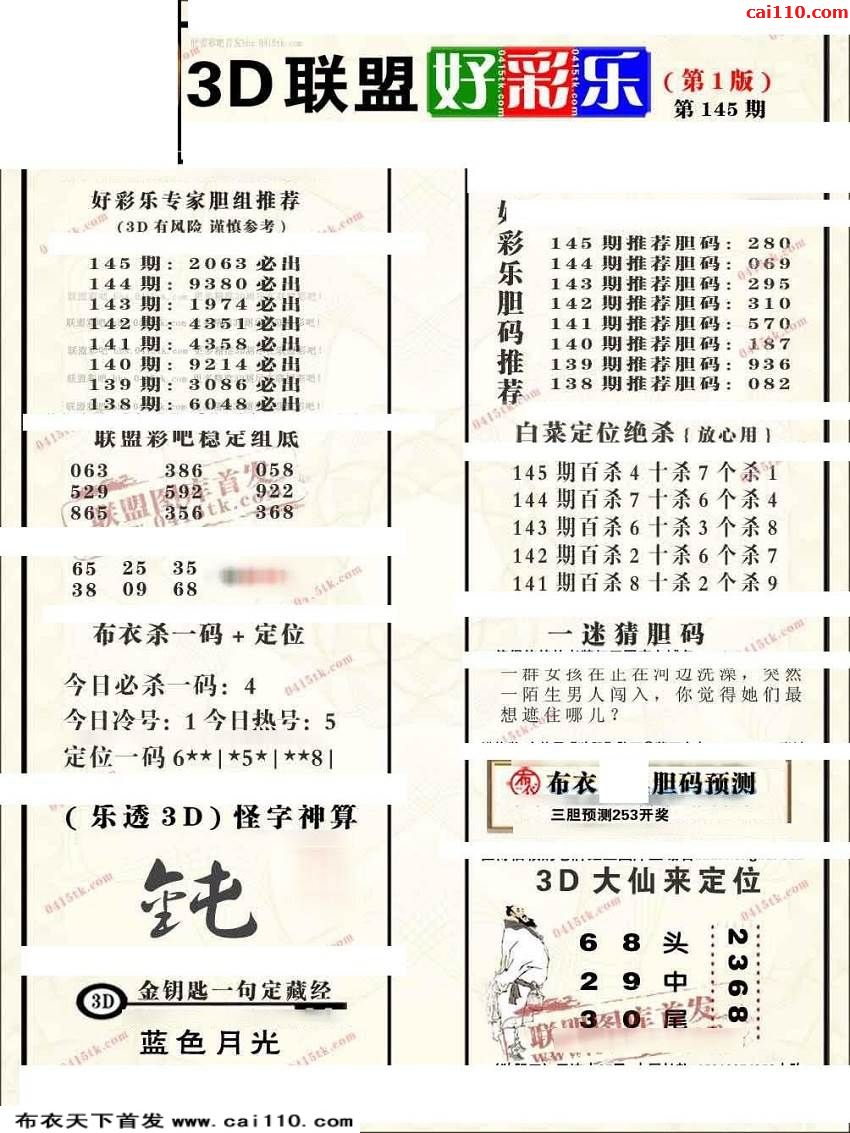 cai110.com
3D联盟 好彩乐 (第1版)
0415tk.com 0415tk.com 0415tk.com
第 145 期
好彩乐专家胆组推荐
(3D有风险 谨慎参考)
145期: 2063必出
144期: 9380必出
143期: 1974必出
142期: 4351必出
141期: 4358必出
140期: 9214必出
139期: 3086必出
138期: 6048必出
联盟彩吧稳定组底
063 386 058
529 592 922
865 356 368
联盟图库首发
0415tk.com
65 25 35
38 09 68
布衣杀一码+定位
今日必杀一码: 4
今日冷号: 1 今日热号: 5
定位一码 6**|*5*|**8|
(乐透3D) 怪字神算
3D 金钥匙一句定藏经
蓝色月光
彩乐胆码推荐
145期推荐胆码: 280
144期推荐胆码: 069
143期推荐胆码: 295
142期推荐胆码: 310
141期推荐胆码: 570
140期推荐胆码: 187
139期推荐胆码: 936
138期推荐胆码: 082
白菜定位绝杀{放心用}
145期百杀4十杀7个杀1
144期百杀7十杀6个杀4
143期百杀6十杀3个杀8
142期百杀2十杀6个杀7
141期百杀8十杀2个杀9
一迷猜胆码
一群女孩在正在河边洗澡，突然
一陌生男人闯入，你觉得她们最
想遮住哪儿？
布衣 布衣 胆码预测
三胆预测253开奖
3D大仙来定位
6 8 头
2 9 中
3 0 尾
2368
联盟图库首发
布衣天下首发 www.cai110.com